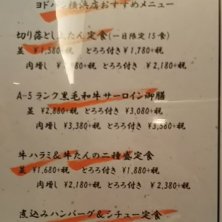 ヨドバシ横浜店おすすめメニュー
切り落とし牛たん定食(一日限定15食)
並 ¥1,380+税 とろろ付き ¥1,780+税
肉増し ¥2,180+税
A-5ランク黒毛和牛サーロイン御膳
並 ¥2,880+税 とろろ付き ¥3,080+税
肉増し ¥3,380+税 とろろ付き ¥3,580+税
牛ハラミ&牛たんの二種盛定食
並 ¥1,680+税 とろろ付き ¥1,880+税
肉増し ¥2,180+税 とろろ付き ¥2,380+税
煮込みハンバーグ&シチュー定食